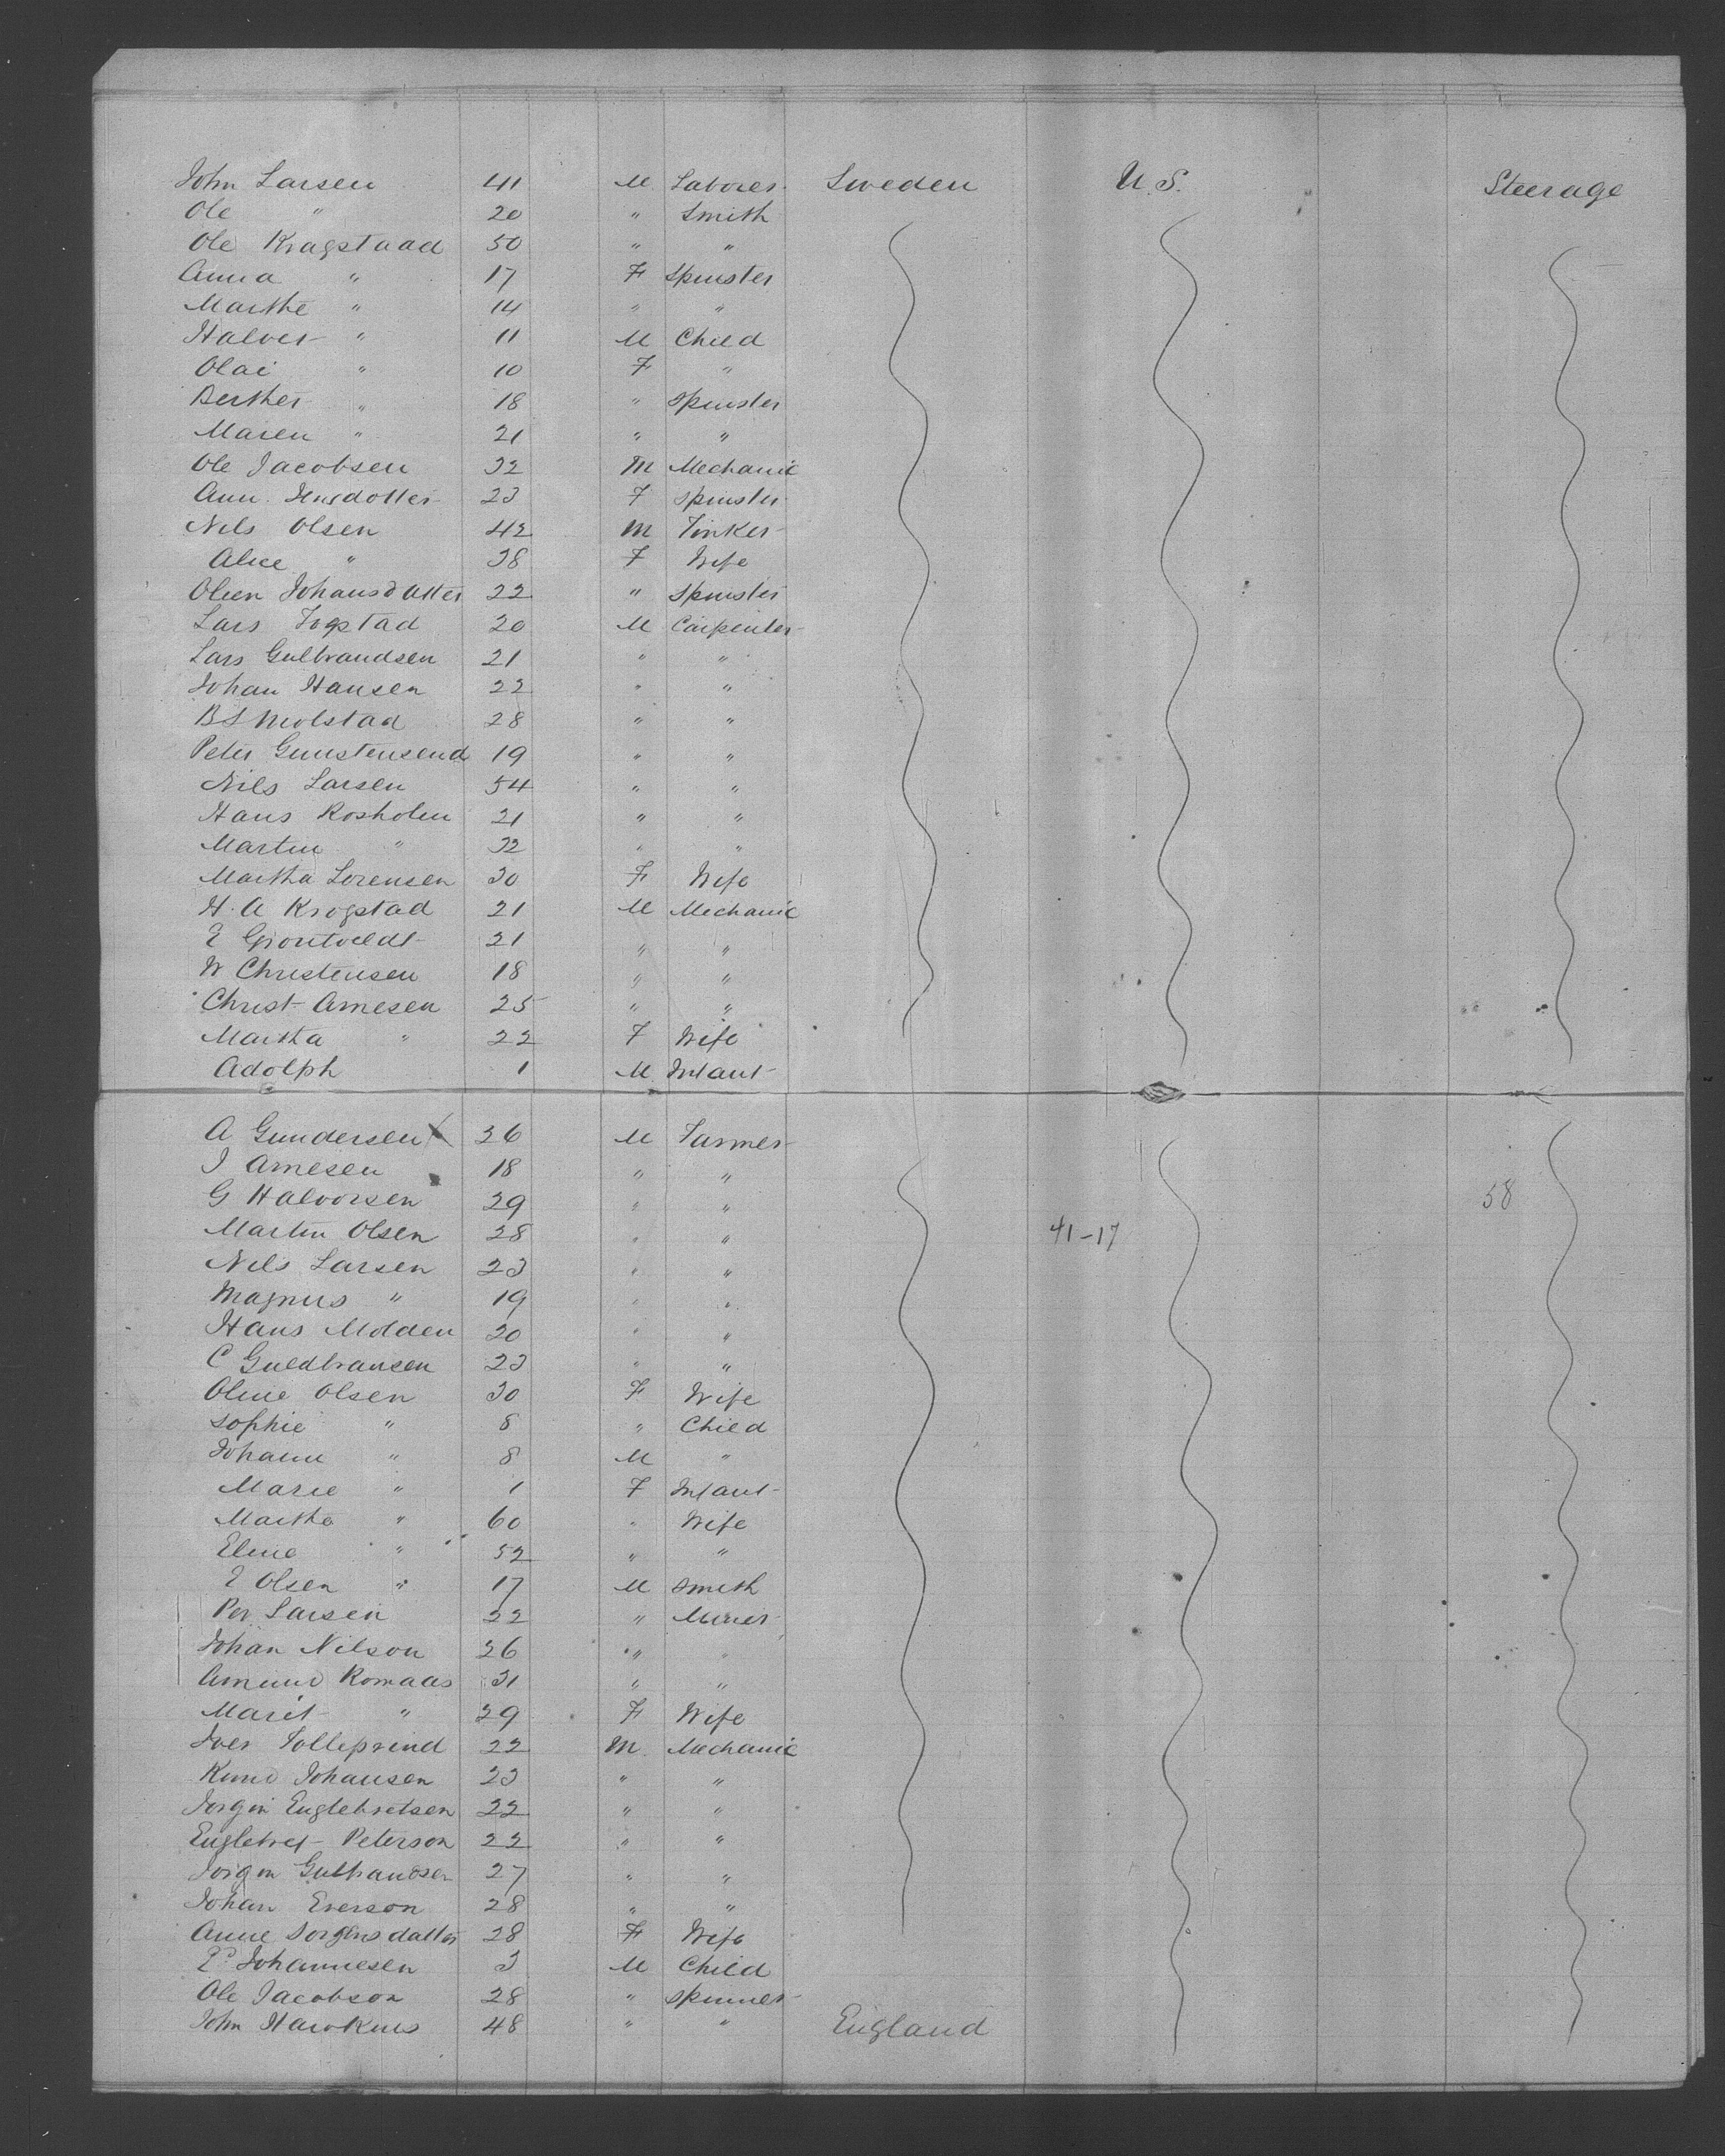 John Larsen 41 M Laborer Sweden U.S. Steerage
Ole " 20 " Smith
Ole Kragstaad 50 " "
Anna " 17 F Spinster
Marthe " 14 " "
Halver " 11 M Child
Olai " 10 F "
Berther " 18 " Spinster
Maren " 21 " "
Ole Jacobsen 32 M Mechanic
Ann 23 F Spinster
Nils Olsen 42 M Tinker
Alice " 38 F Wife
Oleen Johansdatter 22 " Spinster
Lars Fogstad 20 M Carpenter
Lars Gulbrandsen 21 " "
Johan Hansen 22 " "
B S Molstad 28 " "
Peter Gunstensend 19 " "
Nils Larsen 54 " "
Hans Rosholm 21 " "
Martin " 32 " "
Martha Lorensen 30 F Wife
H. A Krogstad 21 M Mechanic
E Grontveldt 21 " "
W Christensen 18 " "
Christ Arnesen 25 " "
Martha " 22 F Wife
Adolph 1 M Infant
A Gundersen X 36 M Farmer
J Arnesen 18 " "
G Halvorsen 29 " " 58
Martin Olsen 28 " " 41-17
Nils Larsen 23 " "
Magnus " 19 " "
Hans Molden 20 " "
C Guldbransen 23 " "
Oline Olsen 30 F Wife
Sophie " 8 " Child
Johann " 8 M "
Marie " 1 F Infant
Martha " 60 " Wife
Eline " 52 " "
E Olsen " 17 M Smith
Per Larsen 22 " Miner
Johan Nilson 26 " "
Amund Romaas 31 " "
Marit " 29 F Wife
Iver 22 M. Mechanic
Knud Johansen 23 " "
Jorgin Englebretsen 22 " "
Englebret Peterson 22 " "
Jorgin Gulbrandsen 27 " "
Johan Everson 28 " "
Anne Jorginsdatter 28 F Wife
P Johannesen 3 M Child
Ole Jacobson 28 " Spinner
John Hawkins 48 " " England